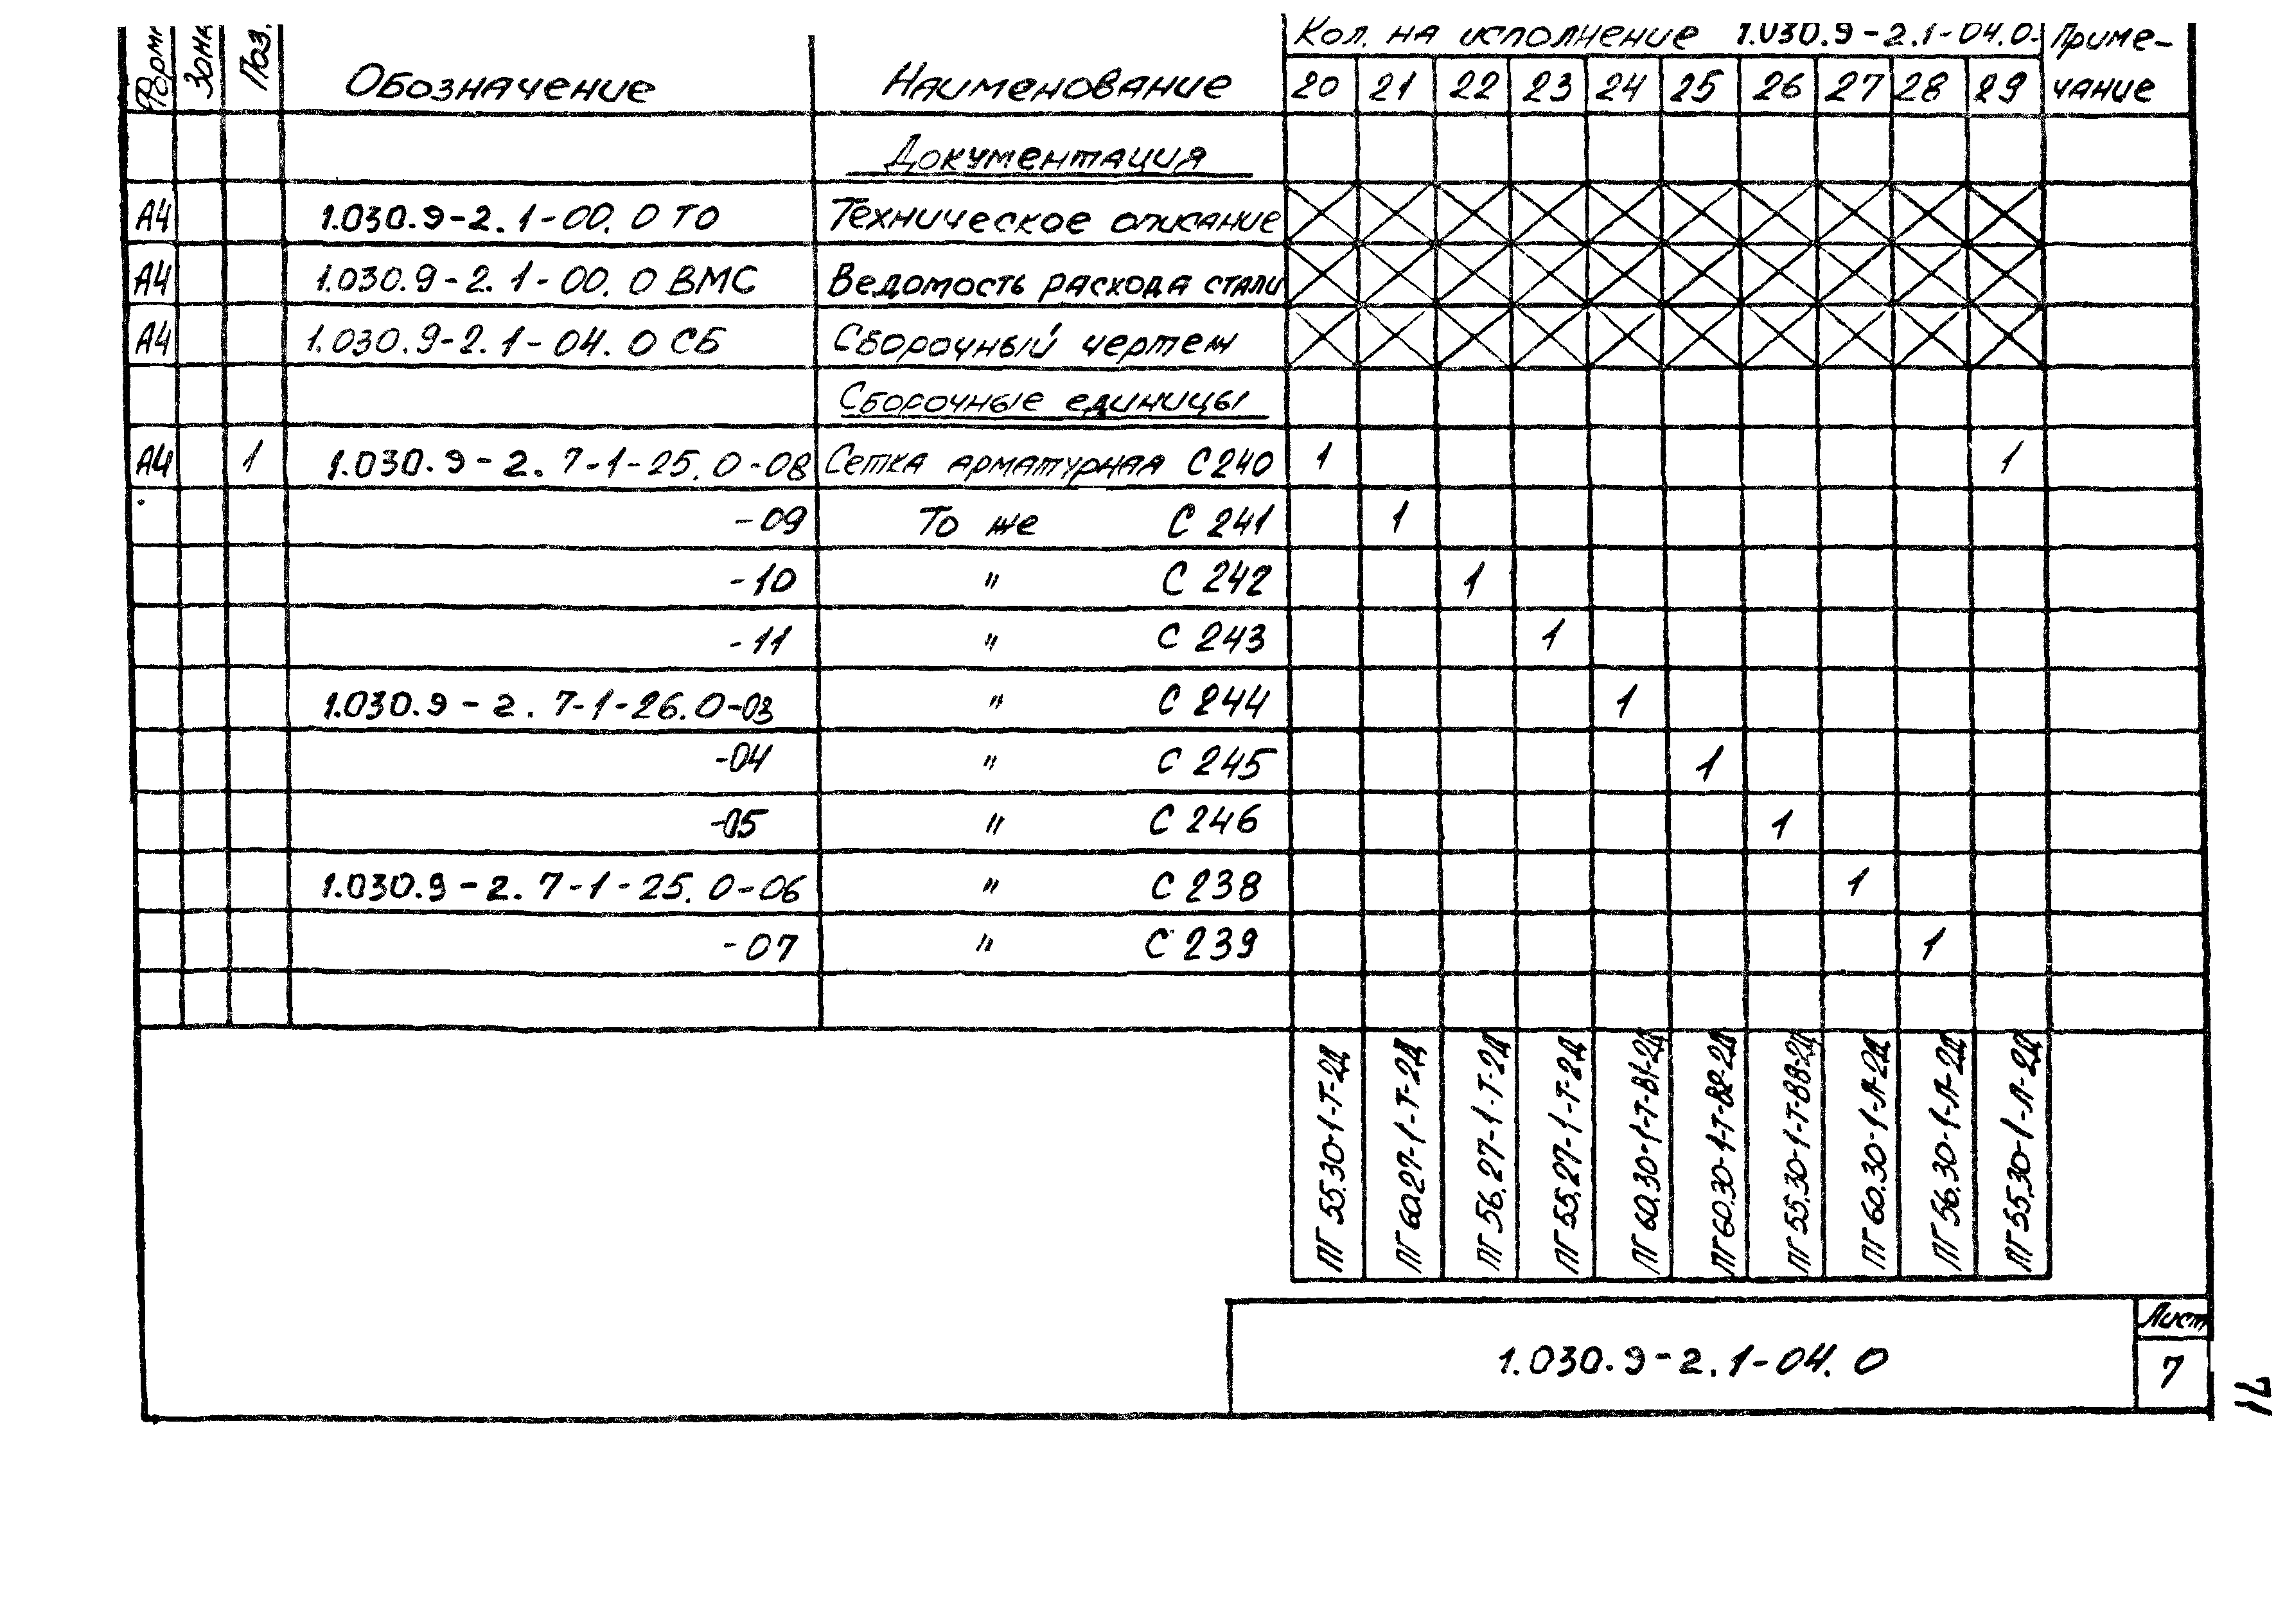 Кол. на исполнение 1.030.9-2.1-04.0- Приме-
Поз. Обозначение Наименование 20 21 22 23 24 25 26 27 28 29 чание
Документация
А4 1.030.9-2.1-00.0 ТО Техническое описание
А4 1.030.9-2.1-00.0 ВМС Ведомость расхода стали
А4 1.030.9-2.1-04.0 СБ Сборочный чертеж
Сборочные единицы
А4 1 1.030.9-2.7-1-25.0-08 Сетка арматурная С240 1 1
-09 То же С 241 1
-10 " С 242 1
-11 " С 243 1
1.030.9-2.7-1-26.0-03 " С 244 1
-04 " С 245 1
-05 " С 246 1
1.030.9-2.7-1-25.0-06 " С 238 1
-07 " С 239 1
ПГ 55.30-1-Т-2Д
ПГ 60.27-1-Т-2Д
ПГ 56.27-1-Т-2Д
ПГ 55.27-1-Т-2Д
ПГ 60.30-1-Т-В1-2Д
ПГ 60.30-1-Т-В2-2Д
ПГ 55.30-1-Т-В8-2Д
ПГ 60.30-1-Л-2Д
ПГ 56.30-1-Л-2Д
ПГ 55.30-1-Л-2Д
1.030.9-2.1-04.0
Лист
7
71